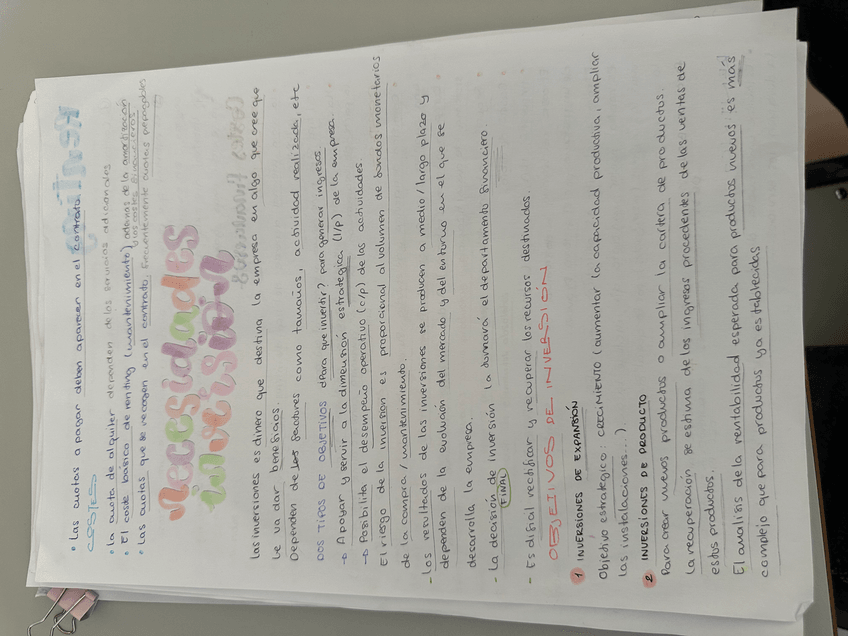 • Las cuotas a pagar deben aparecer en el contrato.
COSTES
• La cuota de alquiler dependen de los servicios adicionales
• El coste basico de renting (mantenimiento) ademas de la amortización y los costes financieros
• Las cuotas que se recogen en el contrato. Frecuentemente cuotas prepagables
Necesidades
inversión
Las inversiones es dinero que destina la empresa en algo que cree que
le va dar beneficios.
Dependen de los factores como tamaños, actividad realizada, etc
DOS TIPOS DE OBJETIVOS ¿Para que invertir? para generar ingresos
→ Apoyar y servir a la dimension estrategica (l/p) de la empresa.
→ Posibilita el desempeño operativo (c/p) de las actividades.
El riesgo de la inversion es proporcional al volumen de fondos monetarios
de la compra / mantenimiento.
- Los resultados de las inversiones se producen a medio/largo plazo y
dependen de la evolución del mercado y del entorno en el que se
desarrolla la empresa.
- La decisión de inversión la tomará el departamento financiero
FINAL
- Es difícil rectificar y recuperar los recursos destinados.
OBJETIVOS DE INVERSIÓN
1 INVERSIONES DE EXPANSIÓN
Objetivo estrategico: CRECIMIENTO (aumentar la capacidad productiva, ampliar
las instalaciones...)
2 INVERSIONES DE PRODUCTO
Para crear nuevos productos o ampliar la cartera de productos.
La recuperación se estima de los ingresos procedentes de las ventas de
estos productos.
El analisis de la rentabilidad esperada para productos nuevos es más
complejo que para productos ya establecidas